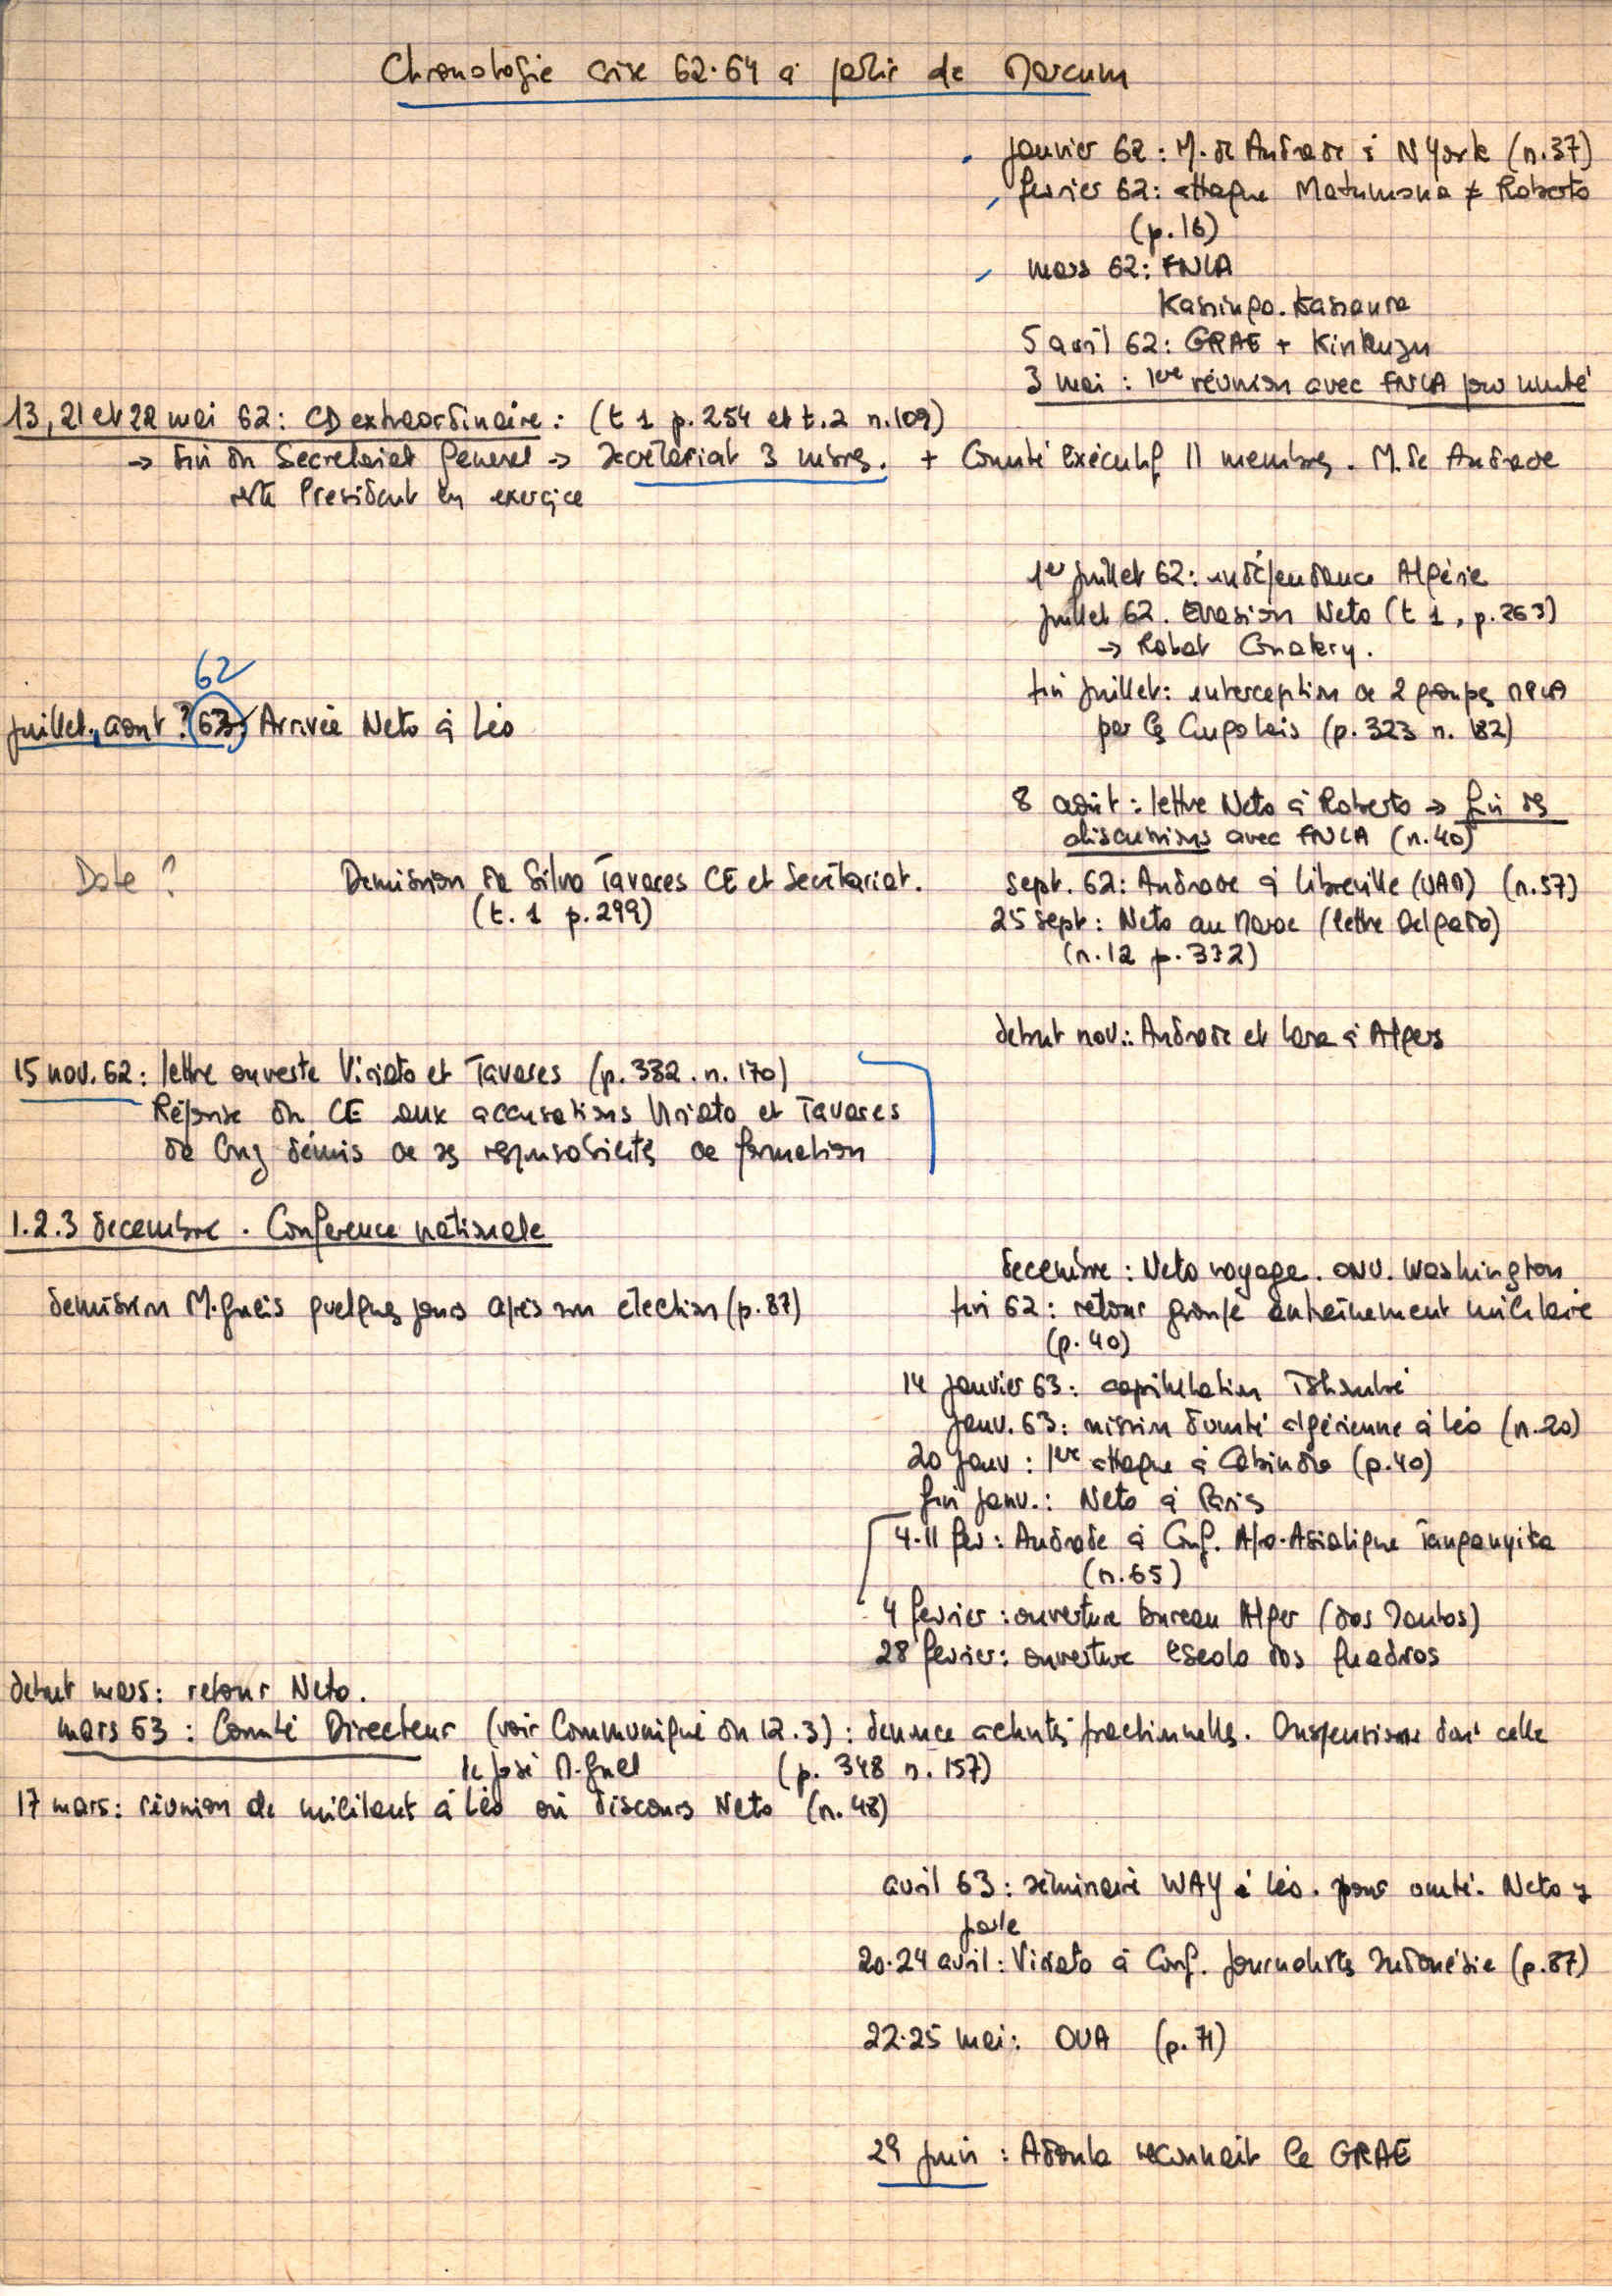 Chronologie crise 62.64 à partir de Marcum
janvier 62 : M. de Andrade à N York (n.37)
février 62 : attaque Matumona ≠ Roberto
(p.16)
mars 62 : FNLA
Kassinga. Kassanga
5 avril 62 : GRAE + Kinkuzu
3 mai : 1ere réunion avec FNLA pour unité
13, 21 et 22 mai 62 : CD extraordinaire : (t 1 p. 254 et t.2 n.109)
→ fin du Secretariat General → Secrétariat 3 mbres. + Comité Exécutif 11 membres. M. de Andrade
reste President en exercice
1er juillet 62 : indépendance Algérie
juillet 62. Evasion Neto (t 1, p.263)
→ Rabat Conakry.
fin juillet : interception de 2 groupes MPLA
par les Congolais (p. 323 n. 182)
62
juillet, aout ? 63 Arrivée Neto à Léo
8 août : lettre Neto à Roberto → fin des
discussions avec FNLA (n.40)
Date ? Demission de Silva Tavares CE et Secrétariat.
(t. 1 p.299)
sept. 62 : Andrade à Libreville (UAM) (n.57)
25 sept : Neto au Maroc (lettre Delgado)
(n.12 p. 332)
debut nov. : Andrade et Lara à Alger
15 nov. 62 : lettre ouverte Viriato et Tavares (p. 332. n. 170)
Réponse du CE aux accusations Viriato et Tavares
da Cruz démis de ses responsabilités de formation
1.2.3 decembre. Conference nationale
decembre : Neto voyage. ONU. Washington
demission M. Gueis quelques jours après son election (p. 87)
fin 62 : retour groupe entraînement militaire
(p. 40)
14 janvier 63 : capitulation Tshombé
janv. 63 : mission d'unité algérienne à Léo (n.20)
20 janv : 1ere attaque à Cabinda (p.40)
fin janv. : Neto à Paris
4.11 fev : Andrade à Conf. Afro-Asiatique Tanganyika
(n.65)
4 fevrier : ouverture bureau Alger (dos Santos)
28 fevrier : ouverture escola dos Quadros
debut mars : retour Neto.
mars 63 : Comité Directeur (voir Communiqué du 12.3) : denonce activités fractionnelles. Suspensions dont celle
de José Miguel (p. 348 n. 157)
17 mars : réunion de militant à Léo où discours Neto (n. 48)
avril 63 : séminaire WAY à Léo. pour unité. Neto y
parle
20.24 avril : Viriato à Conf. journalistes Indonésie (p.87)
22.25 mai : OUA (p. 71)
29 juin : Adoula reconnait le GRAE